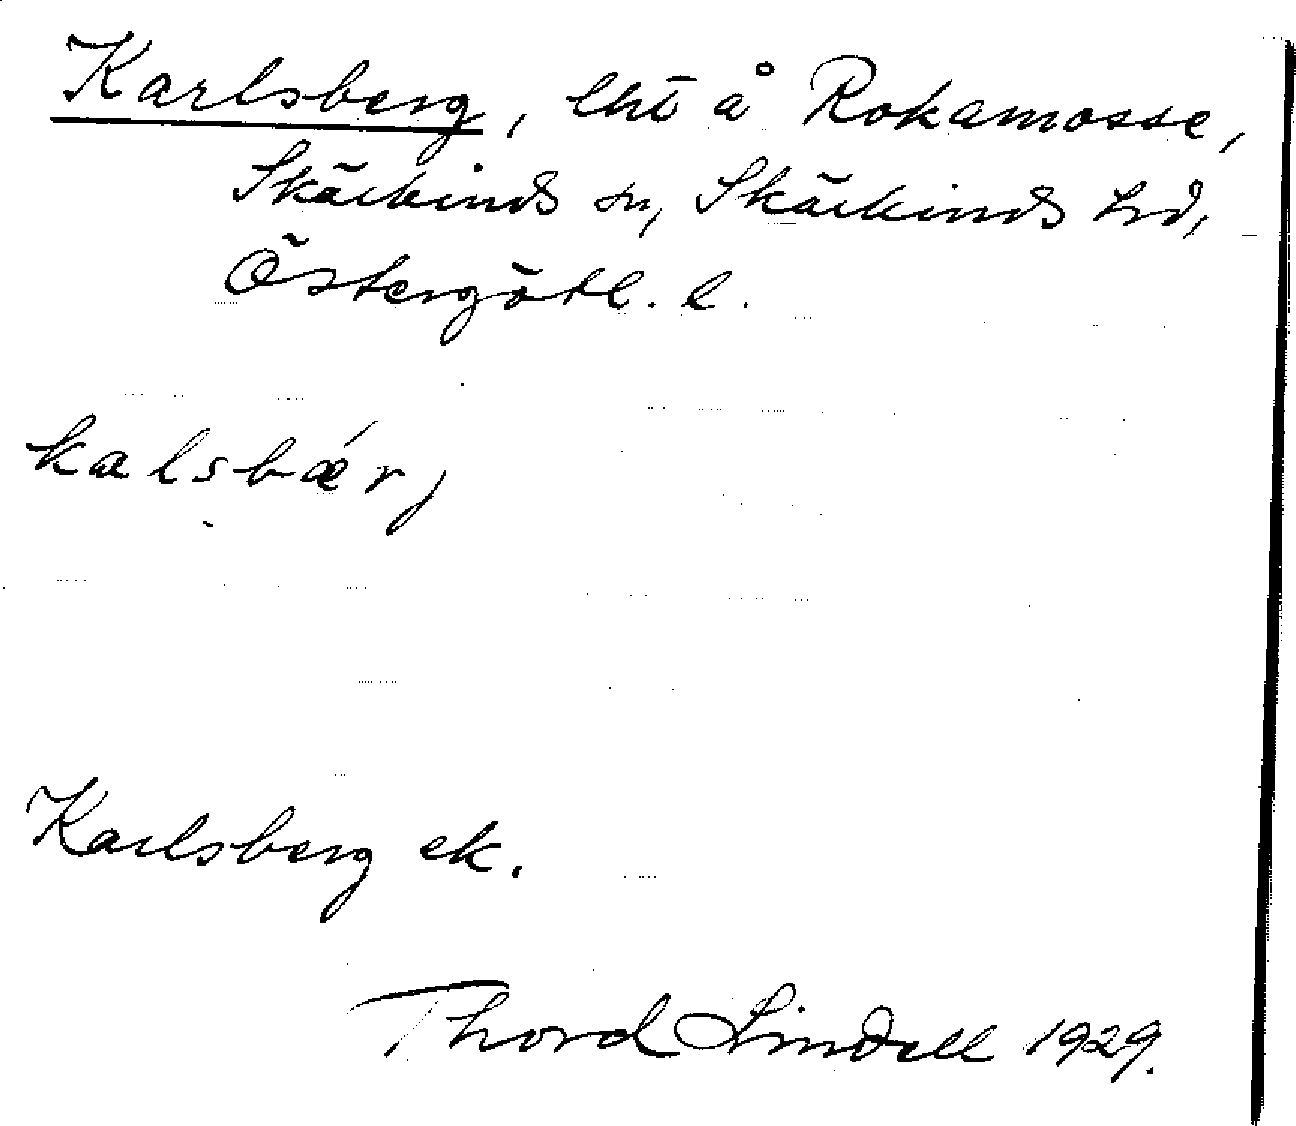 Karlsberg, lht å Rokamosse,
Skärkinds sn, Skärkinds hd,
Östergötl. l.
kalsbǽrj
Karlsberg ek.
Thord Lindell 1929.